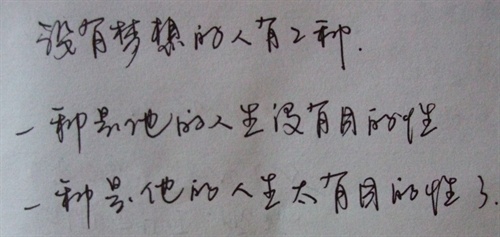 没有梦想的人有2种.
一种是他的人生没有目的性
一种是.他的人生太有目的性了.